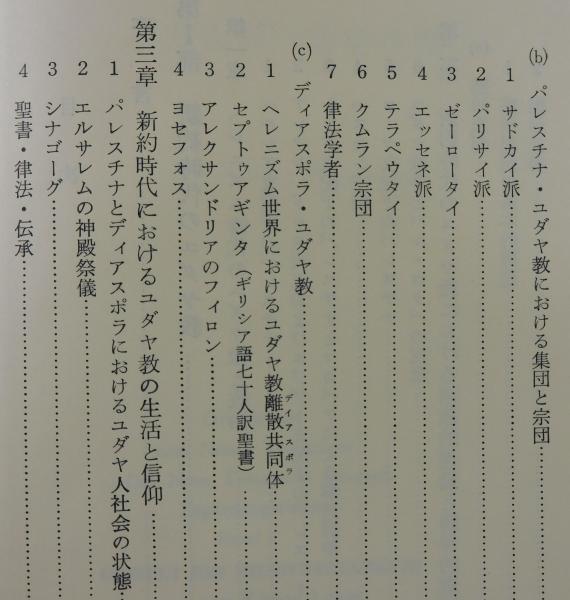 (b) パレスチナ・ユダヤ教における集団と宗団
1 サドカイ派
2 パリサイ派
3 ゼーロータイ
4 エッセネ派
5 テラペウタイ
6 クムラン宗団
7 律法学者
(c) ディアスポラ・ユダヤ教
1 ヘレニズム世界におけるユダヤ教離散共同体
ディアスポラ
2 セプトゥアギンタ（ギリシア語七十人訳聖書）
3 アレクサンドリアのフィロン
4 ヨセフォス
第三章 新約時代におけるユダヤ教の生活と信仰
1 パレスチナとディアスポラにおけるユダヤ人社会の状態
2 エルサレムの神殿祭儀
3 シナゴーグ
4 聖書・律法・伝承